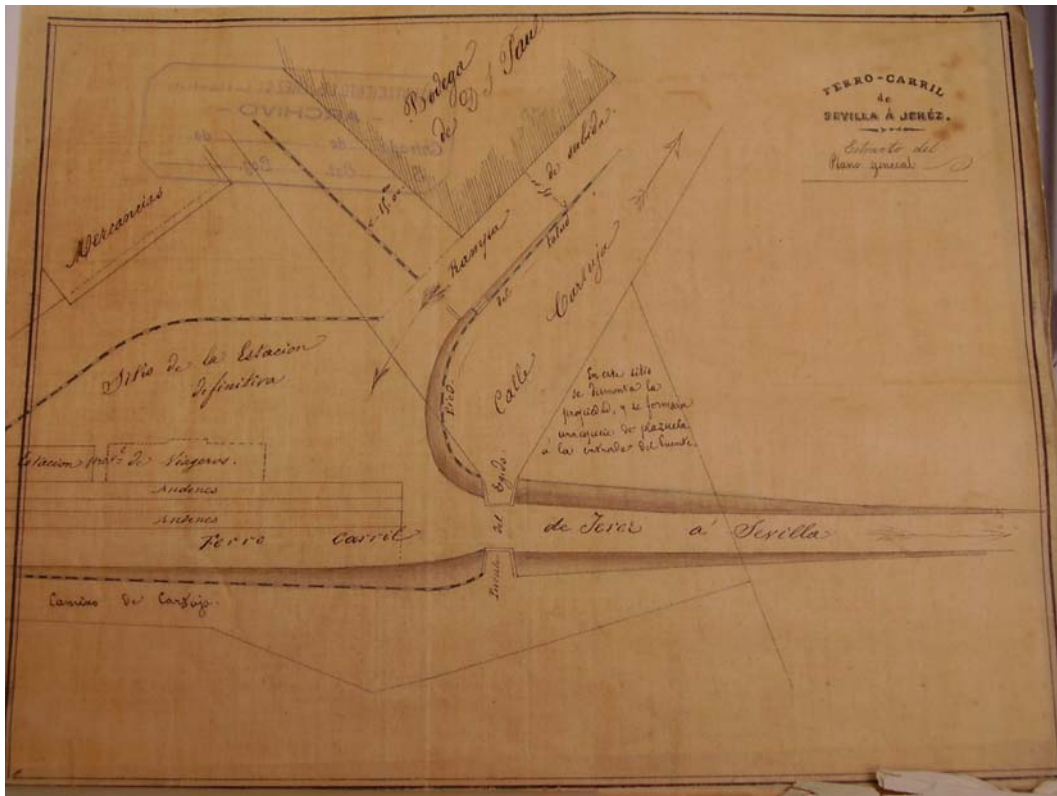 FERRO-CARRIL
de
SEVILLA Á JERÉZ.
Extracto del
Plano general
Bodega
de D J Pau
ARCHIVO
Mercancias
15,m00
Rampa de subida.
Pie del talud
Calle Cartuja
Sitio de la Estacion
definitiva
En este sitio
se desmonta la
propiedad, y se formara
una especie de plazuela
á la entrada del Puente.
Estacion prov.l de Viageros.
Andenes
Andenes
Ferro Carril de Jerez á Sevilla
Puente del Egido.
Camino de Cartuja.